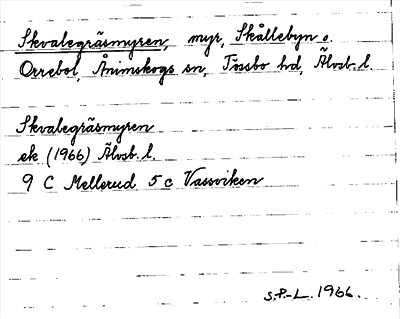 Skvalegräsmyren, myr, Skållebyn o.
Orrebol, Ånimskogs sn, Tössbo hd, Älvsb. l.
Skvalegräsmyren
ek (1966) Älvsb. l.
9 C Mellerud 5 c Vassviken
S.P.-L. 1966.